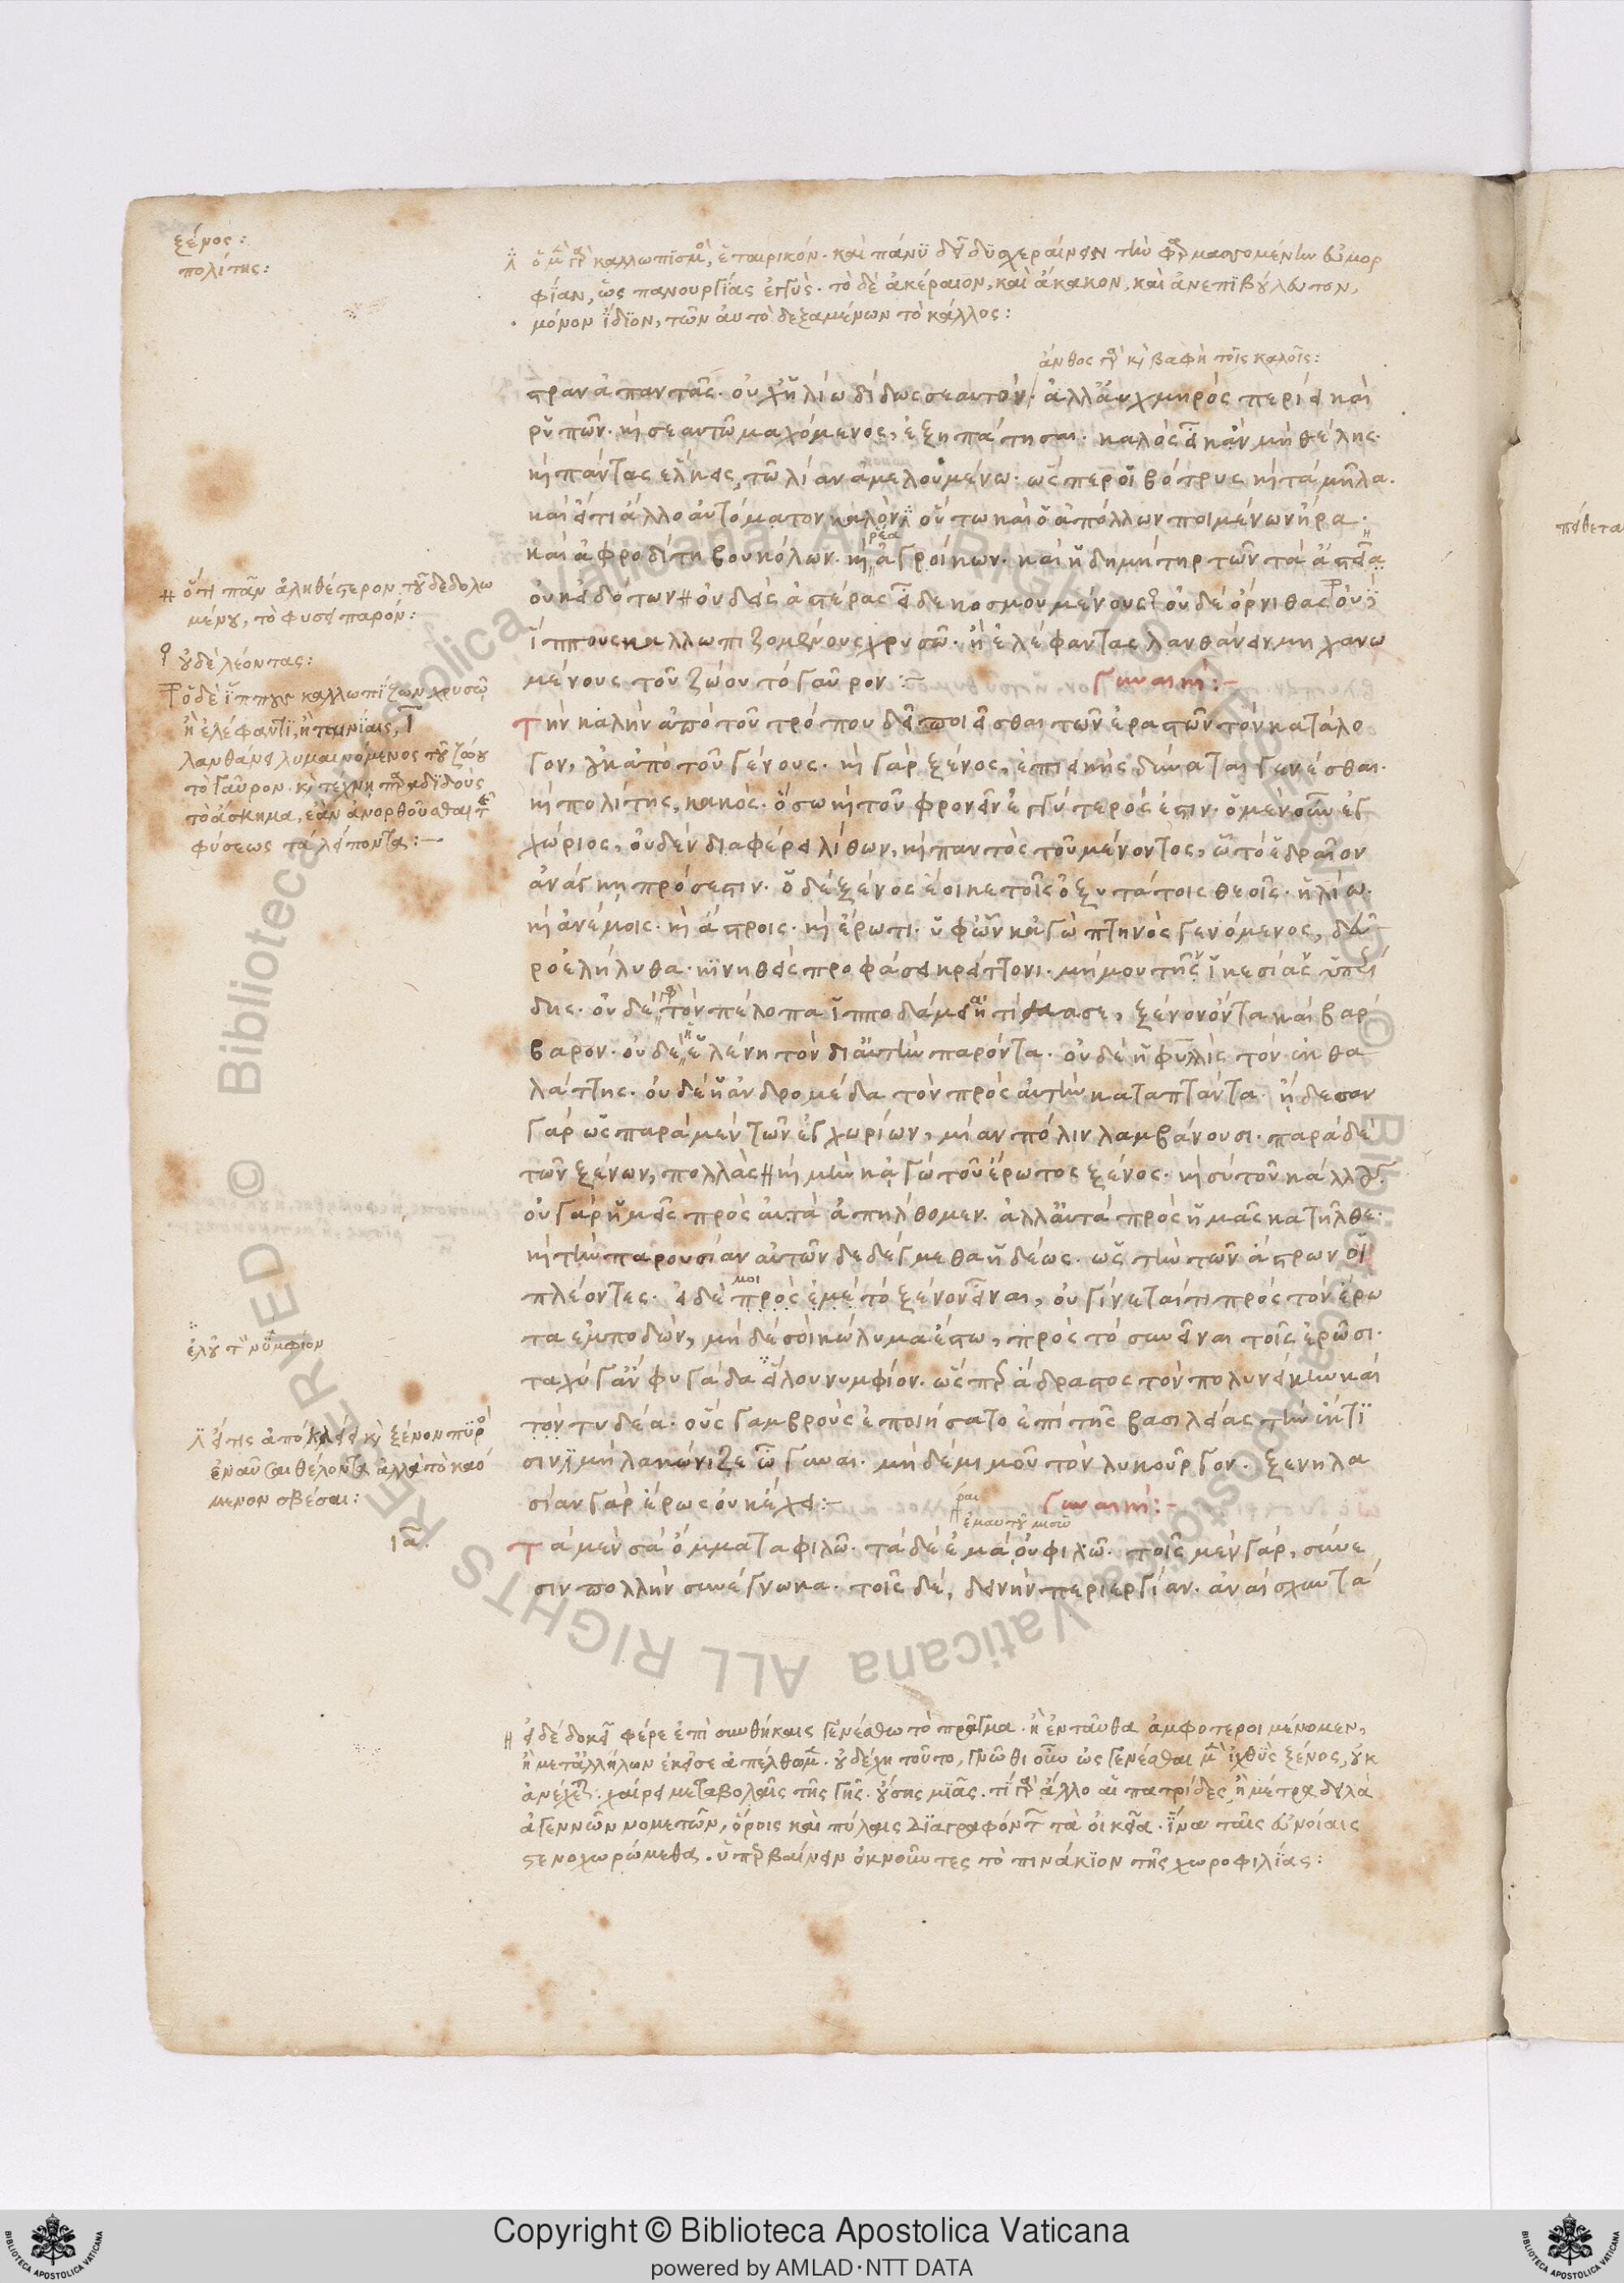 ξένος:
πολίτης:
ὁ μὲν γὰρ καλλωπισμὸς, ἑταιρικόν· καὶ πάνυ δεῖ δυσχεραίνειν τὴν φαρμασσομένην εὐμορ
φίαν, ὡς πανουργίας ἐγγύς· τὸ δὲ ἀκέραιον, καὶ ἄκακον, καὶ ἀνεπιβούλευτον,
μόνον ἴδιον, τῶν αὐτὸ δεξαμένων τὸ κάλλος:
ἄνθος γὰρ καὶ βαφὴ τοῖς καλοῖς:
τραν ἀπαντᾶς· οὐχ ἡλίω δίδως σεαυτόν· ἀλλ' αὐχμηρός περίει καὶ
ρυπῶν· καὶ σεαυτῶ μαχόμενος, ἐξηπάτησαι· καλὸς εἶ κἂν μὴ θέλης·
καὶ πάντας ἕλκεις τῶ λίαν ἀμελουμένω· ὥσπερ οἱ βότρυς καὶ τὰ μῆλα·
καὶ εἴ τι ἄλλο αὐτόματον καλὸν οὕτω καὶ ὁ ἀπόλλων ποιμένων ἤρα·
ρέα
καὶ ἀφροδίτη βουκόλων· καὶ ἀγροίκων· καὶ ἡ δημήτηρ τῶν τὰ ἄστεα
οὐκ εἰδότων οὐδεὶς ἀστέρας εἶδε κοσμουμένους οὐδὲ ὄρνιθας
ἵππους καλλωπιζομένους χρυσῶ· ἢ ἐλέφαντας λανθάνει
μένους τοῦ ζώου τὸ γαῦρον:- Γυναικί:-
# ὅτι πᾶν ἀληθέστερον τοῦ δεδολω
μένου, τὸ φύσει παρόν:
οὐδὲ λέοντας:
οὐδὲ ἵππους καλλωπίζων χρυσῶ
ἢ ἐλέφαντι, ἢ ταινίαις,
λανθάνει λυμαινόμενος τοῦ ζώου
τὸ γαῦρον· καὶ τέχνη παραδιδοὺς
τὸ ἄσκημα, ἐὰν ἀνορθοῦσθαι τῆς
φύσεως τὰ λείποντα:-
Τὴν καλὴν ἀπὸ τοῦ τρόπου δεῖ ποιεῖσθαι τῶν ἐραστῶν τὸν κατάλο
γον, οὐκ ἀπὸ τοῦ γένους· καὶ γὰρ ξένος, ἐπιεικὴς δύναται γενέσθαι·
καὶ πολίτης, κακός· ὅσω καὶ τοῦ φρονεῖν ἐγγύτερός ἐστιν· ὁ μὲν οὖν ἐγ
χώριος, οὐδὲν διαφέρει λίθων, καὶ παντὸς τοῦ μένοντος, ὧ τὸ ἑδραῖον
ἀνάγκη πρόσεστιν· ὁ δὲ ξένος ἔοικε τοῖς ὀξυτάτοις θεοῖς· ἡλίω·
καὶ ἀνέμοις· καὶ ἄστροις· καὶ ἔρωτι· ὑφ' ὧν κἀγὼ πτηνὸς γενόμενος, δεῦ
ρο ἐλήλυθα· κινηθεὶς προφάσει κρείττονι· μή μου τῆς ἱκεσίας ὑπερί
δης· οὐδὲ γὰρ τὸν πέλοπα ἱπποδάμεια ἠτίμασε, ξένον ὄντα καὶ βάρ
βαρον· οὐδὲ ἡ ἑλένη τὸν δι' αὐτὴν παρόντα· οὐδὲ ἡ φυλλὶς τὸν ἐκ θα
λάττης· οὐδὲ ἡ ἀνδρομέδα τὸν πρὸς αὐτὴν καταπτάντα· ἤδεσαν
γὰρ ὡς παρὰ μὲν τῶν ἐγχωρίων, μίαν πόλιν λαμβάνουσι· παρὰ δὲ
τῶν ξένων, πολλὰς # καὶ μὴν κἀγὼ τοῦ ἔρωτος ξένος· καὶ σὺ τοῦ κάλλους·
οὐ γὰρ ἡμεῖς πρὸς αὐτὰ ἀπήλθομεν· ἀλλ' αὐτὰ πρὸς ἡμᾶς κατῆλθε·
καὶ τὴν παρουσίαν αὐτῶν δεδέγμεθα ἡδέως· ὡς τὴν τῶν ἄστρων οἱ
μοι
πλέοντες· εἰ δὲ πρὸς ἐμὲ τὸ ξένον εἶναι, οὐ γίνεταί τι πρὸς τὸν ἔρω
τα ἐμποδών, μηδὲ σοὶ κώλυμα ἔστω, πρὸς τὸ συνεῖναι τοῖς ἐρῶσι·
ταχὺ γἂν φυγάδα εἵλου νυμφίον· ὥσπερ ἄδραστος τὸν πολυνείκην καὶ
τὸν τυδέα· οὓς γαμβροὺς ἐποιήσατο ἐπὶ τῆς βασιλείας τὴν
σιν μὴ λακώνιζε ὦ γύναι· μηδὲ μιμοῦ τὸν λυκοῦργον· ξενηλα
σίαν γὰρ ἔρως οὐκ ἔχει:- Γυναικί:-
ἑλοῦ τὸν νυμφίον
εἴ τις ἀποκλείει καὶ ξένον πῦρ
ἐναῦσαι θέλοντα ἀλλὰ τὸ καιό
μενον σβέσαι:
ια
ἐμαυτοῦ μισῶ
Τὰ μὲν σὰ ὄμματα φιλῶ· τὰ δὲ ἐμὰ οὐ φιλῶ· τοῖς μὲν γάρ, σύνε
σιν πολλὴν συνέγνωκα· τοῖς δέ, δεινὴν περιεργίαν· ἀναίσχυντα
εἰ δὲ δοκεῖ φέρε ἐπὶ συνθήκαις γενέσθω τὸ πρᾶγμα· ἢ ἐνταῦθα ἀμφότεροι μένομεν,
ἢ μετ' ἀλλήλων ἐκεῖσε ἀπέλθωμεν· οὐ δέχη τοῦτο, γνῶθι οὖν ὡς γενέσθαι μὲν ἰχθῦς ξένος, οὐκ
ἀνέχεται· χαίρει μεταβολαῖς τῆς γῆς· οὔσης μιᾶς· τί γὰρ ἄλλο αἱ πατρίδες, ἢ μέτρα δειλὰ
ἀγεννῶν νομετῶν, ὅροις καὶ πύλαις διαγραφόντων τὰ οἰκεῖα· ἵνα ταῖς εὐνοίαις
στενοχωρώμεθα· ὑπερβαίνειν ὀκνοῦντες τὸ πινάκιον τῆς χωροφιλίας:
πόθετα
Copyright © Biblioteca Apostolica Vaticana
powered by AMLAD·NTT DATA
BIBLIOTECA APOSTOLICA VATICANA
BIBLIOTECA APOSTOLICA VATICANA
© Biblioteca Apostolica Vaticana ALL RIGHTS RESERVED